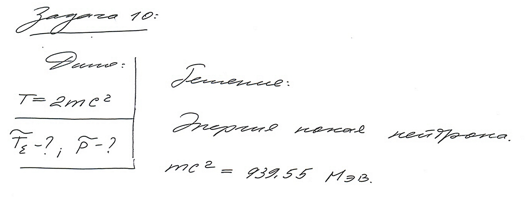 Задача 10:
Дано:
T = 2mc²
T̃_Σ - ?; p̃ - ?
Решение:
Энергия покоя нейтрона.
mc² = 939,55 Мэв.